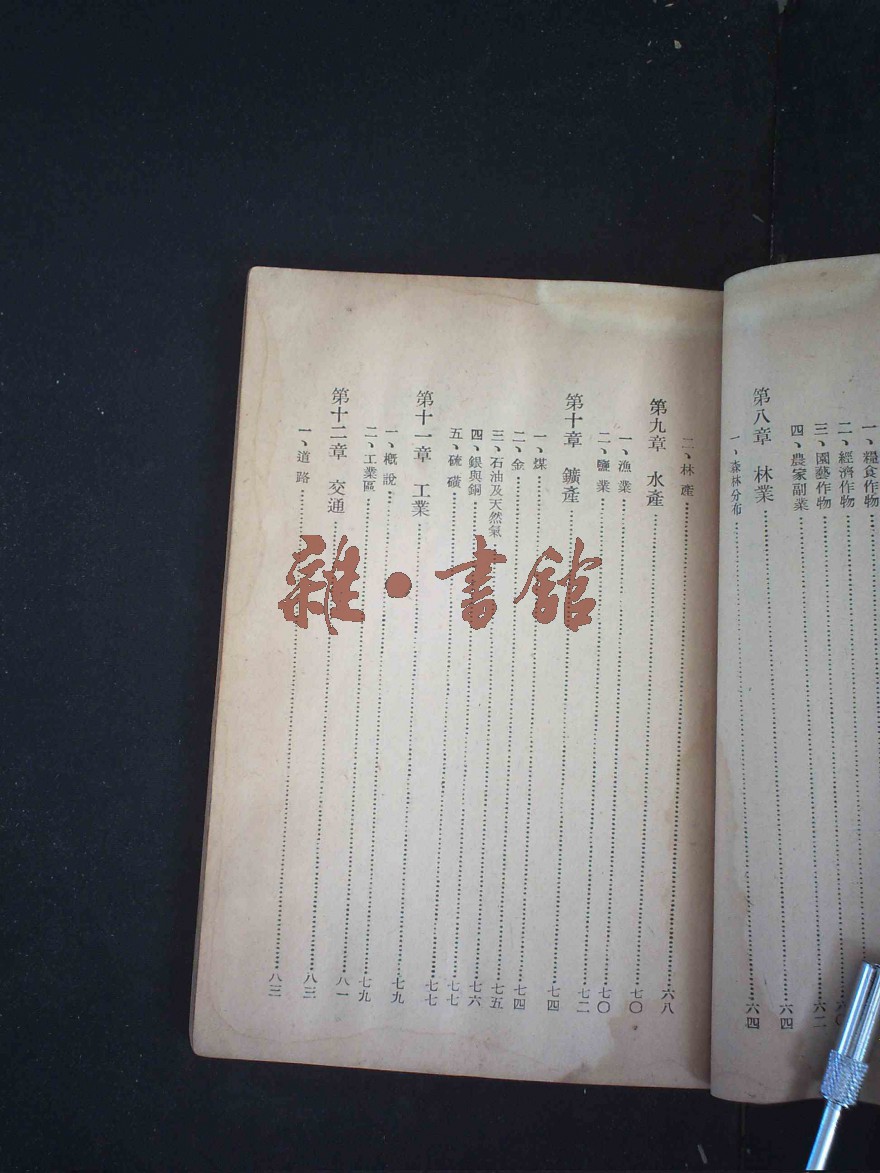 一、糧食作物
二、經濟作物
三、園藝作物……六〇
四、農家副業……六二
第八章 林業……六四
一、森林分布……六四
二、林產……六八
第九章 水產……七〇
一、漁業……七〇
二、鹽業……七二
第十章 鑛產……七四
一、煤……七四
二、金……七五
三、石油及天然氣……七六
四、銀與銅……七七
五、硫磺……七七
第十一章 工業……七九
一、概說……七九
二、工業區……八一
第十二章 交通……八三
一、道路……八三
雜·書館